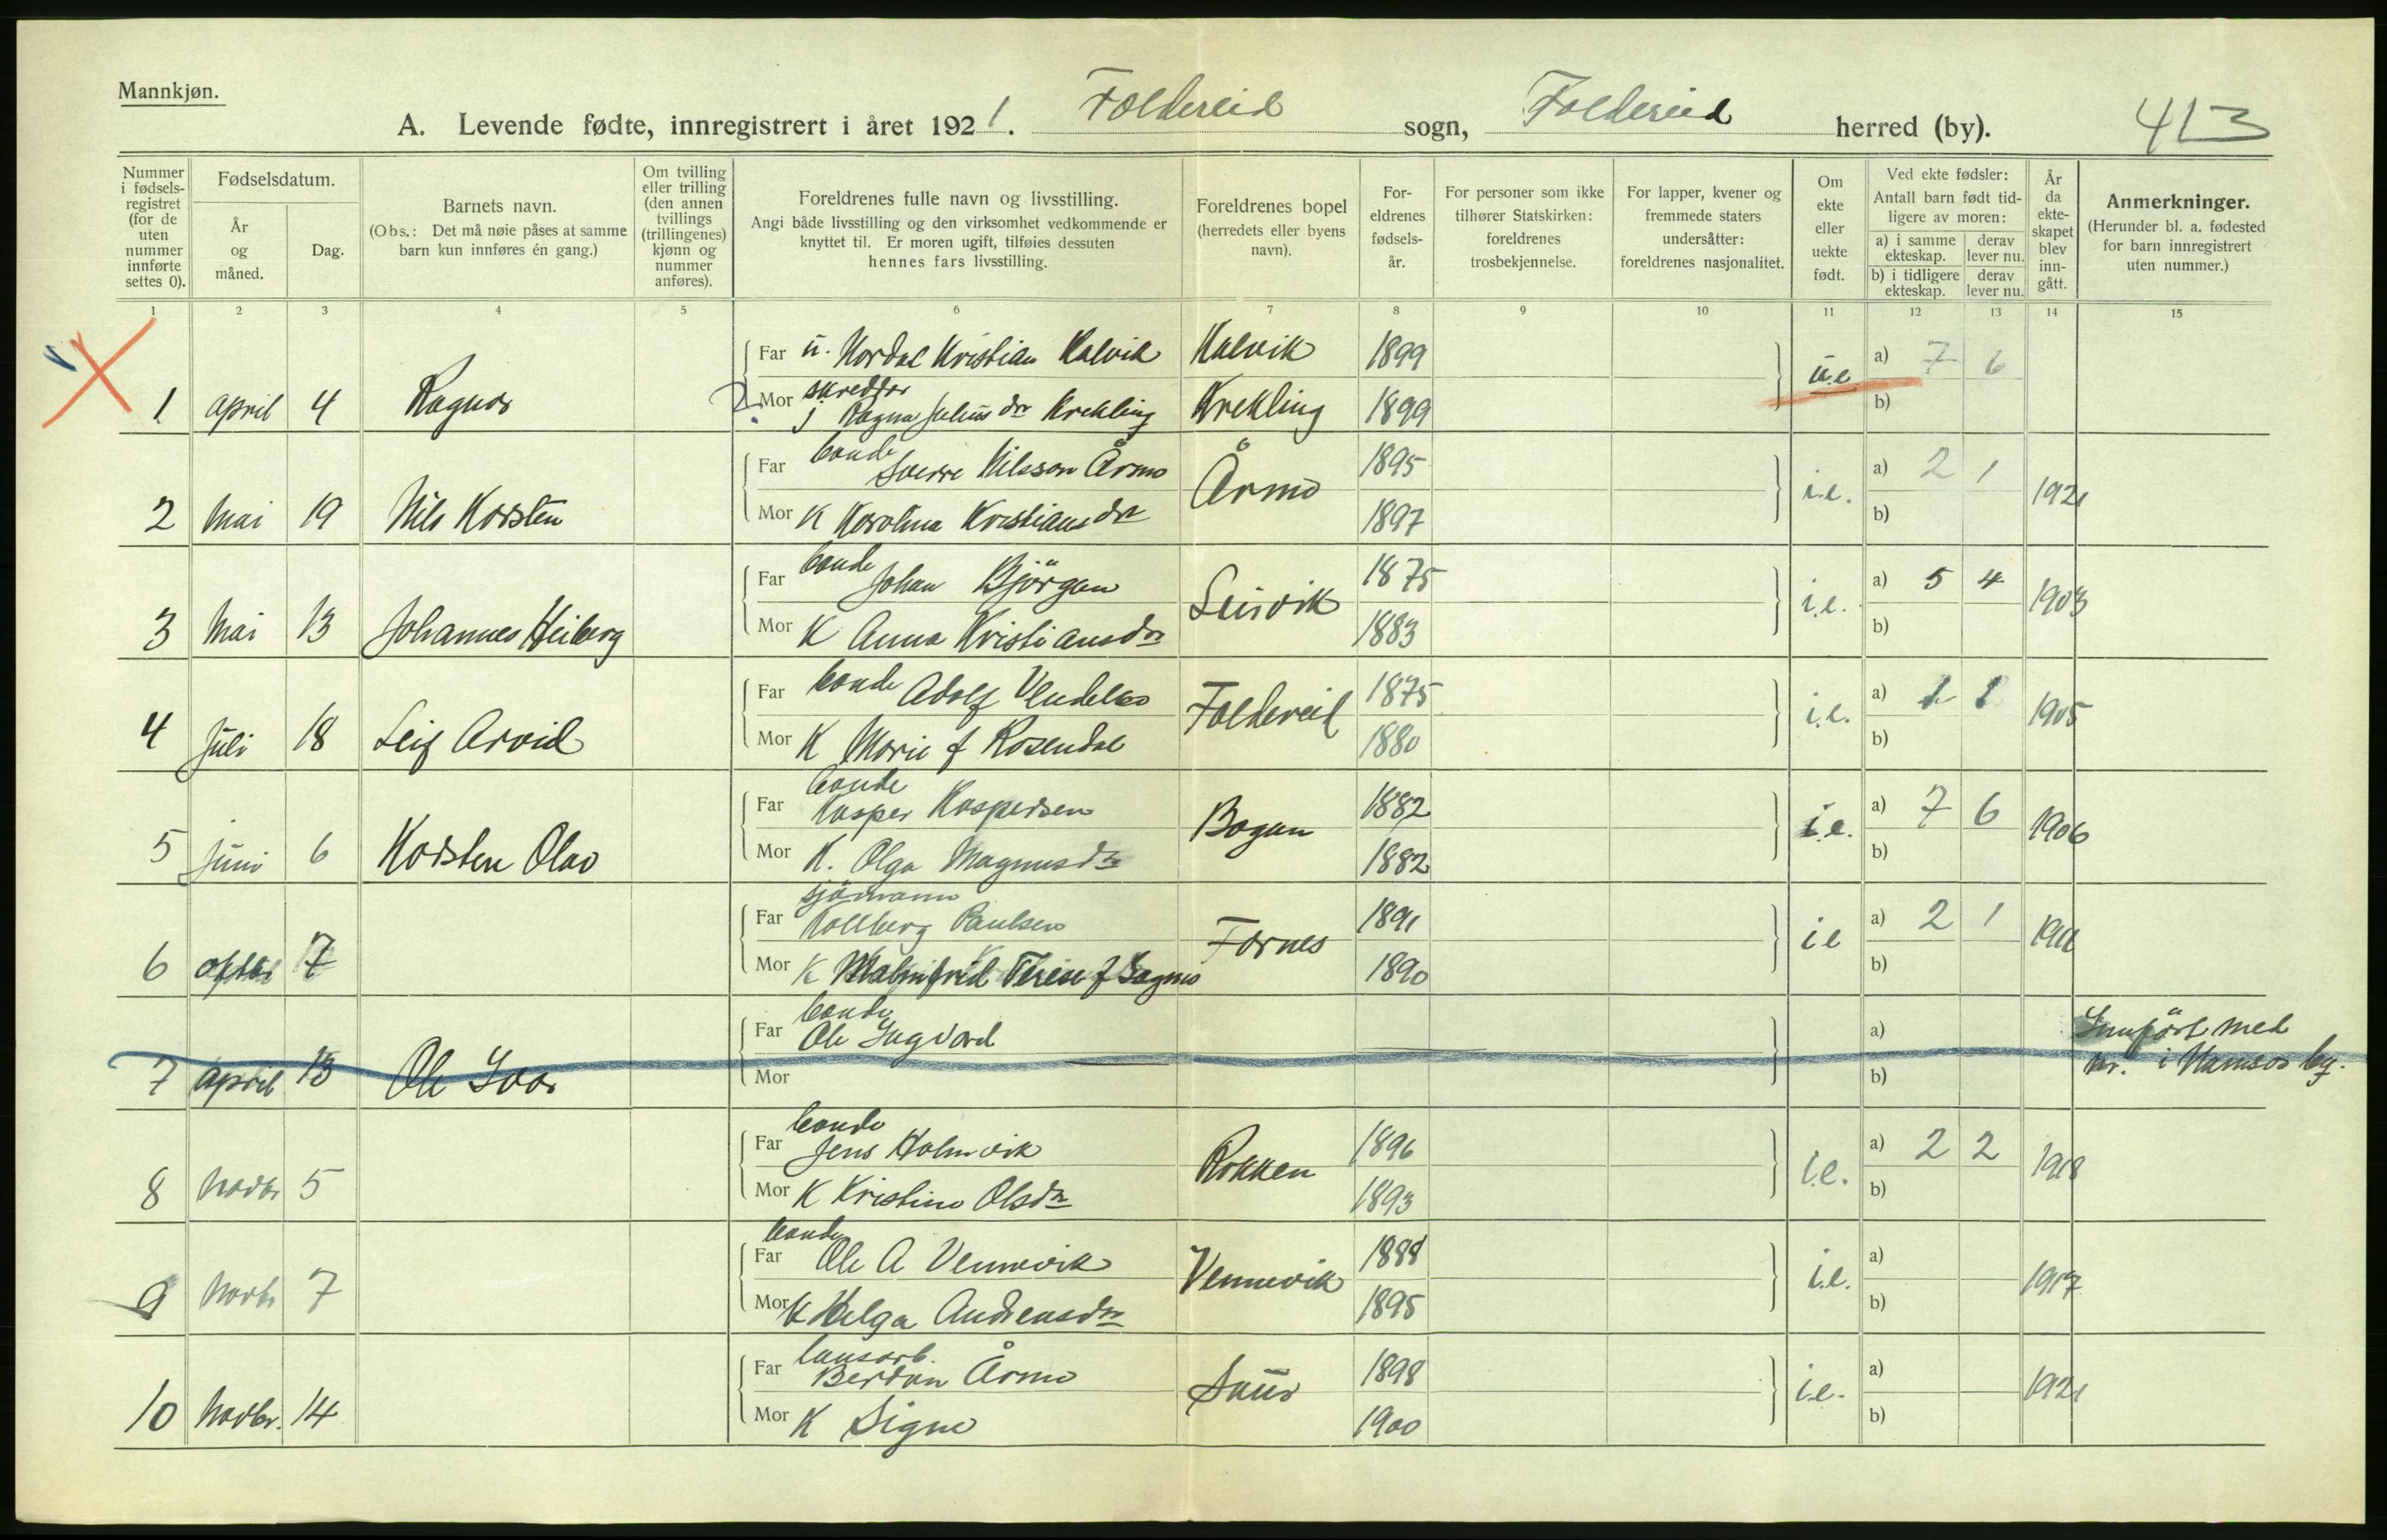 Mannkjøn.
A. Levende fødte, innregistrert i året 1921. Foldereid sogn, Foldereid herred (by). 413
Nummer i fødsels-registret (for de uten nummer innførte settes 0).
Fødselsdatum.
År og måned.
Dag.
Barnets navn.
(Obs.: Det må nøie påses at samme barn kun innføres én gang.)
Om tvilling eller trilling (den annen tvillings (trillingenes) kjønn og nummer anføres).
Foreldrenes fulle navn og livsstilling.
Angi både livsstilling og den virksomhet vedkommende er knyttet til. Er moren ugift, tilføies dessuten hennes fars livsstilling.
Foreldrenes bopel (herredets eller byens navn).
For-eldrenes fødsels-år.
For personer som ikke tilhører Statskirken: foreldrenes trosbekjennelse.
For lapper, kvener og fremmede staters undersåtter: foreldrenes nasjonalitet.
Om ekte eller uekte født.
Ved ekte fødsler:
Antall barn født tid-ligere av moren:
a) i samme ekteskap. derav lever nu.
b) i tidligere ekteskap. derav lever nu.
År da ekte-skapet blev inn-gått.
Anmerkninger.
(Herunder bl. a. fødested for barn innregistrert uten nummer.)
1 2 3 4 5 6 7 8 9 10 11 12 13 14 15
Far u. Nordal Kristian Kalvik Kalvik 1899 a) 7 6
1 april 4 Ragnar Mor skredder u.e b)
j Ragna Julius dr Krekling Krekling 1899
Far bonde Sverre Nilsson Årmo Årmo 1895 i.e. a) 2 1 1921
2 Mai 19 Nils Korsten Mor K Karolina Kristiansdr 1897 b)
Far bonde Johan Bjørgan Leirvik 1875 i.e. a) 5 4 1903
3 Mai 13 Johannes Heiberg Mor K Anna Kristiansdr 1883 b)
Far bonde Adolf Foldereid 1875 i.e. a) 1 1 1905
4 Juli 18 Leif Arvid Mor K Marie f Rosendal 1880 b)
Far bonde Kasper Kaspersen Bogan 1882 i.e. a) 7 6 1906
5 Juni 6 Korsten Olav Mor K. Olga Magnusdr 1882 b)
Far sjømann Kollberg Paulsen Fornes 1891 i.e a) 2 1
6 7 Mor K Malmfrid Terese f Sagmo 1890 b)
Far bonde Ole Ingvard a) Innført med
7 april 13 Ole Ivar Mor b) nr. i Namsos by.
Far bonde Jens Holmvik Rokken 1896 i.e. a) 2 2 1918
8 Novbr 5 Mor K Kristine Olsdr 1893 b)
Far bonde Ole A Vennevik Vennevik 1888 i.e. a) 1917
9 Novbr 7 Mor K Helga Andreasdr 1895 b)
Far Berdon Årmo 1898 i.e. a) 1921
10 Novbr. 14 Mor K Signe 1900 b)